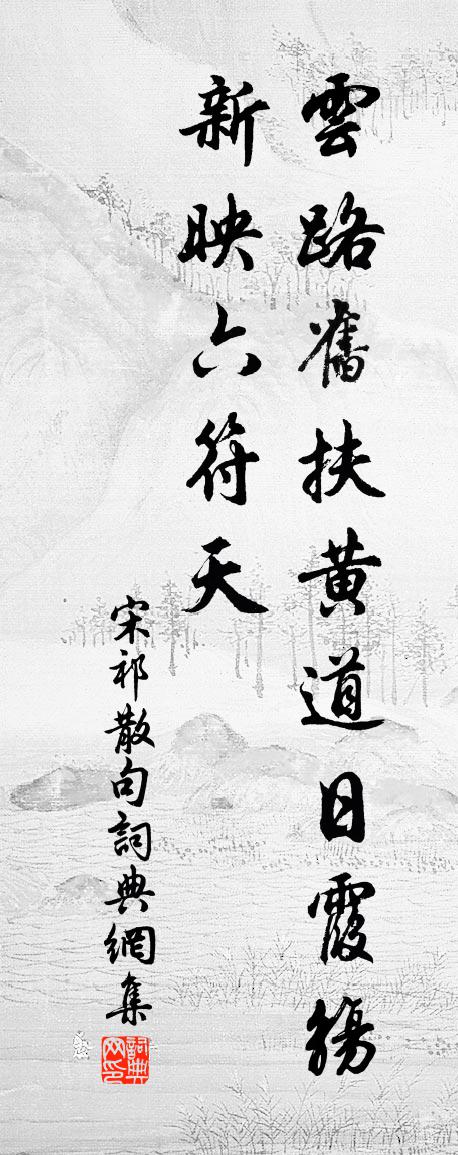 雲路舊扶黄道日霞觴
新映六符天
宋祁散句詞典網集
詞典网印